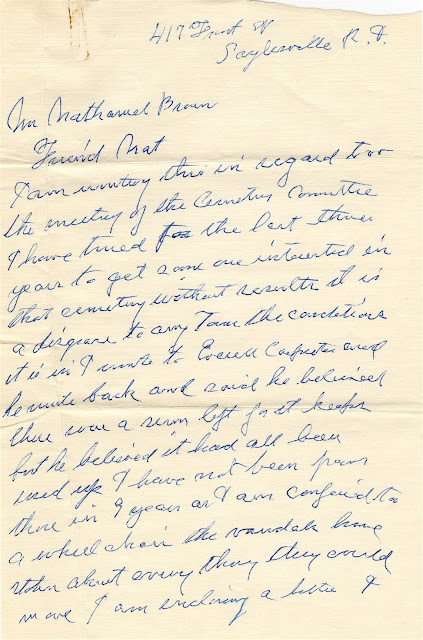 417 Front St
Saylesville R. I.
Mr Nathaniel Brown
Friend Nat
I am writing this in regard too
the meeting of the Cemetery Committie
I have tried for the last three
years to get some one intersted in
that cemetery without results it is
a disgrace to any Town the conditions
it is in I wrote to Everett Carpenter and
he wrote back and said he believed
there was a sum left for it keep
but he believed it had all been
used up I have not been
there in 9 years as I am confined to
a wheel chair the vandals have
stolen about every thing they could
move I am enclosing a letter I